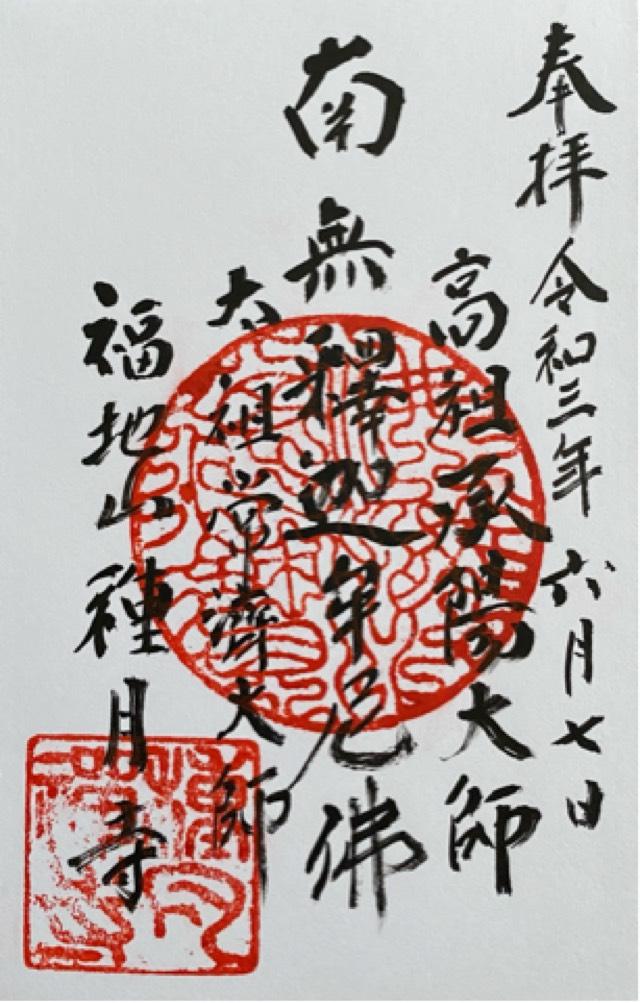 奉拝 令和三年 六月七日
高祖承陽大師
南無釋迦牟尼佛
太祖常濟大師
福地山種月寺